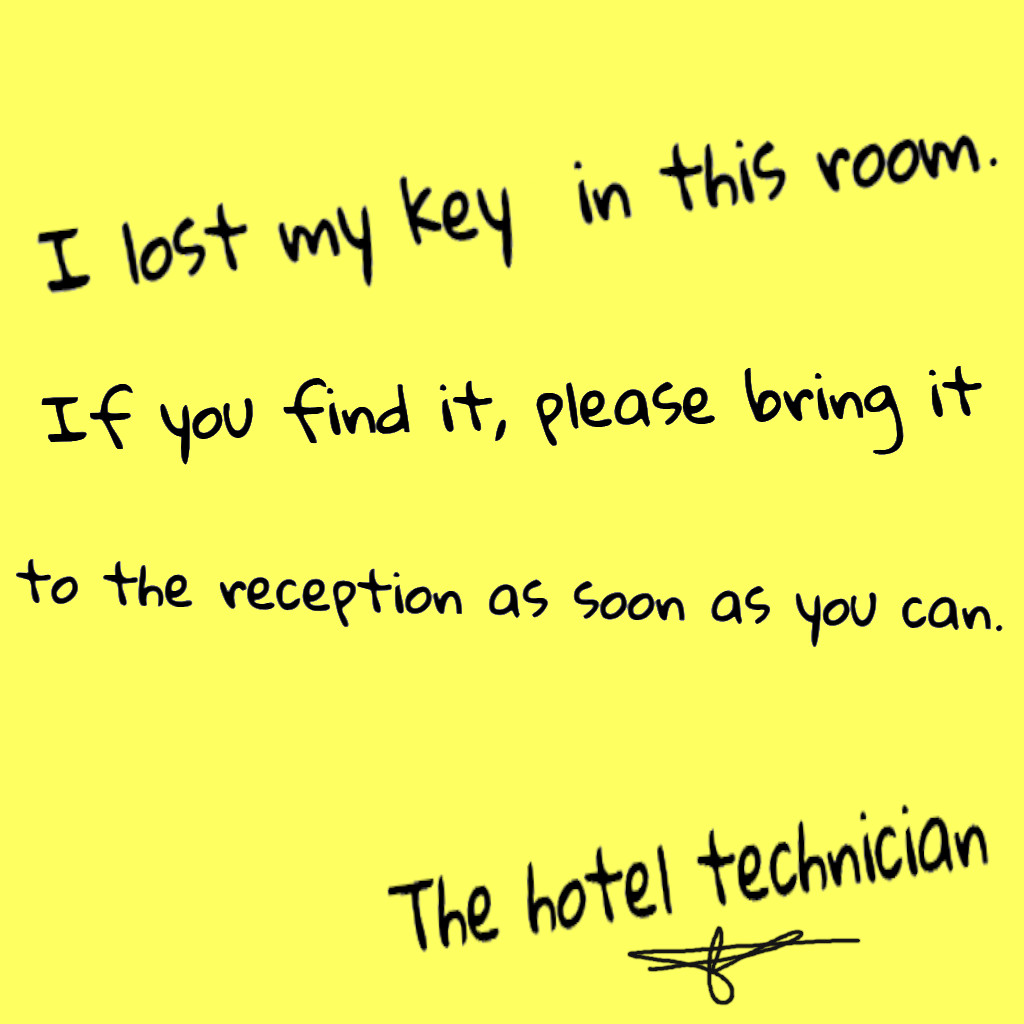 I lost my key in this room.
If you find it, please bring it
to the reception as soon as you can.
The hotel technician